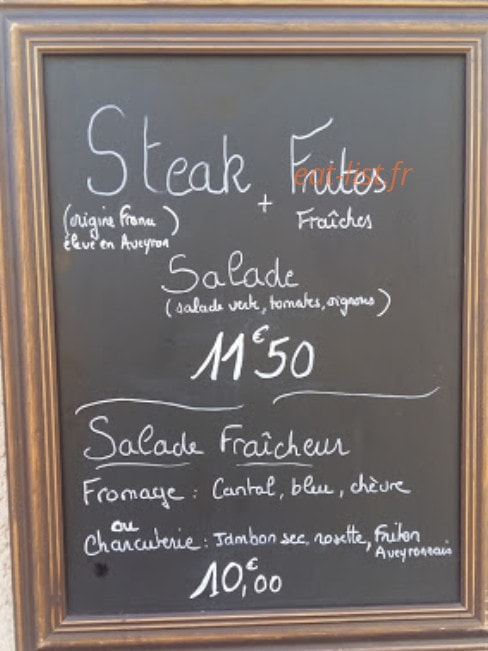 Steak + Frites
(origine France) Fraîches
élevé en Aveyron
Salade
(salade verte, tomates, oignons)
11€50
Salade Fraîcheur
Fromage : Cantal, bleu, chèvre
ou
Charcuterie : Jambon sec, rosette, Friton
Aveyronnais
10,€00
eat-list.fr